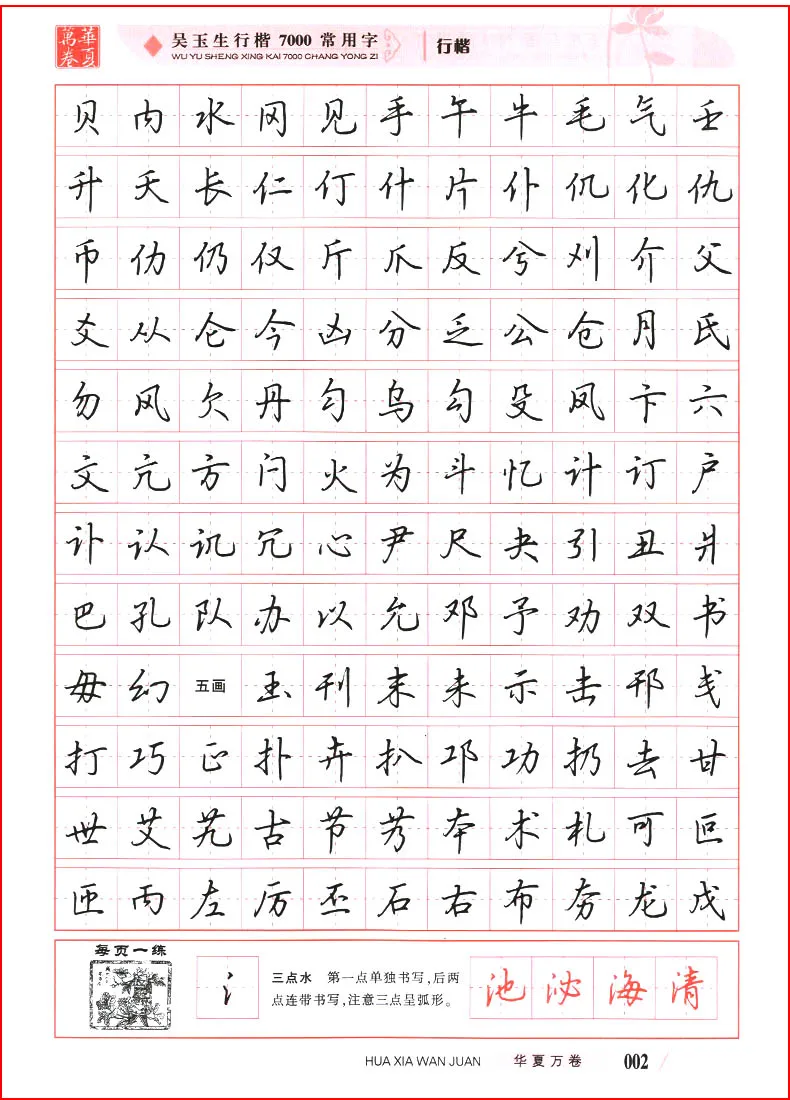 華夏
萬卷
吴玉生行楷 7000 常用字
WU YU SHENG XING KAI 7000 CHANG YONG ZI
行楷
贝 内 水 冈 见 手 午 牛 毛 气 壬
升 夭 长 仁 仃 什 片 仆 仉 化 仇
币 仂 仍 仅 斤 爪 反 兮 刈 介 父
爻 从 仑 今 凶 分 乏 公 仓 月 氏
勿 风 欠 丹 匀 乌 勾 殳 凤 卞 六
文 亢 方 闩 火 为 斗 忆 计 订 户
讣 认 讥 冗 心 尹 尺 夬 引 丑 爿
巴 孔 队 办 以 允 邓 予 劝 双 书
毋 幻 五画 玉 刊 末 未 示 击 邗 戋
打 巧 正 扑 卉 扒 邛 功 扔 去 甘
世 艾 艽 古 节 艿 本 术 札 可 叵
匝 丙 左 厉 丕 石 右 布 夯 龙 戊
每页一练
氵
三点水 第一点单独书写,后两
点连带书写,注意三点呈弧形。
池 泌 海 清
HUA XIA WAN JUAN 华夏万卷 002